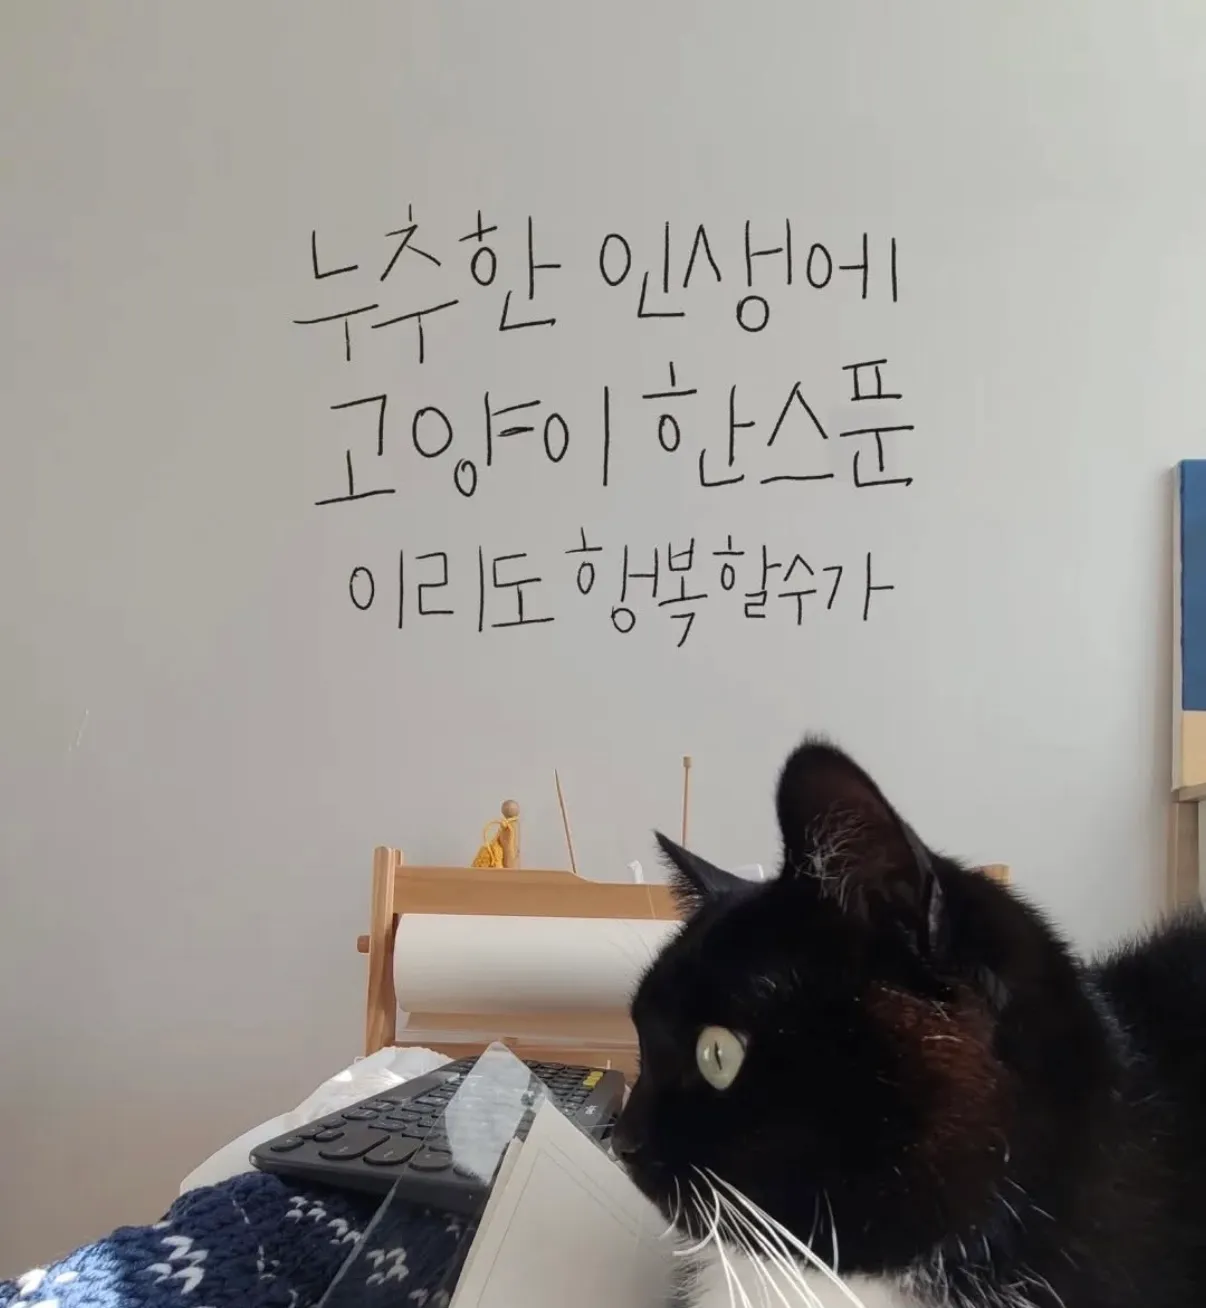 누추한 인생에
고양이 한스푼
이리도 행복할수가